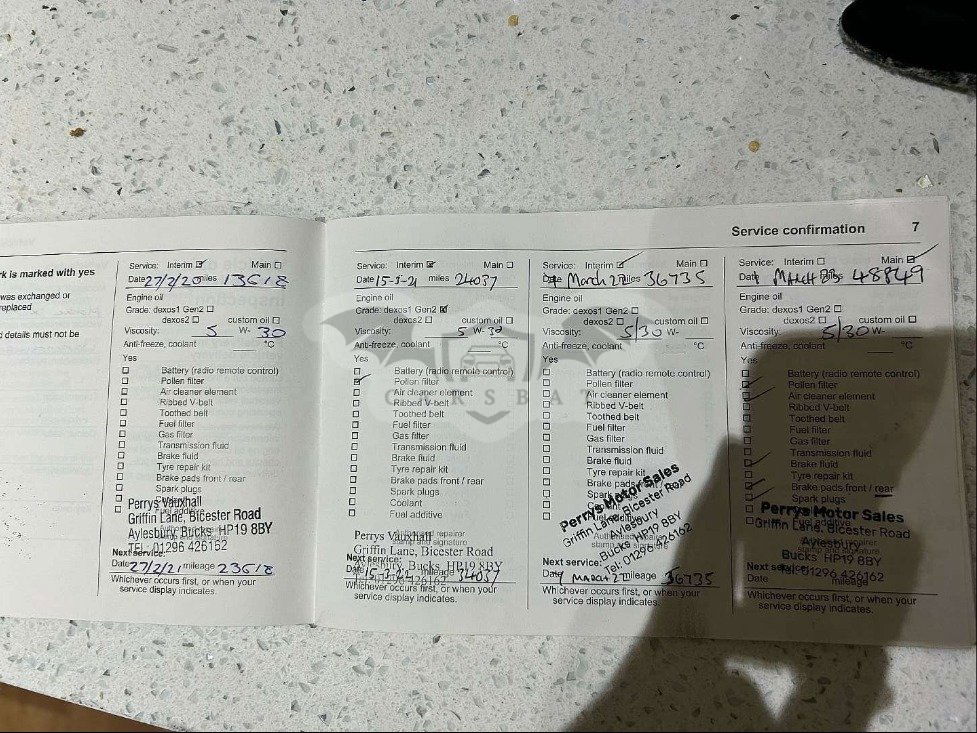 Service confirmation 7
rk is marked with yes
was exchanged or
replaced
d details must not be
Service: Interim Main
Date 27/2/20 miles 13618
Engine oil
Grade: dexos1 Gen2
dexos2 custom oil
Viscosity: 5 W- 30
Anti-freeze, coolant °C
Yes
Battery (radio remote control)
Pollen filter
Air cleaner element
Ribbed V-belt
Toothed belt
Fuel filter
Gas filter
Transmission fluid
Brake fluid
Tyre repair kit
Brake pads front / rear
Spark plugs
Perrys Vauxhall
Griffin Lane, Bicester Road
Aylesbury Bucks HP19 8BY
TEL: 01296 426162
Next service:
Date 27/2/21 mileage 23618
Whichever occurs first, or when your
service display indicates.
Service: Interim Main
Date 15-3-21 miles 24037
Engine oil
Grade: dexos1 Gen2
dexos2 custom oil
Viscosity: 5 W- 30
Anti-freeze, coolant °C
Yes
Battery (radio remote control)
Pollen filter
Air cleaner element
Ribbed V-belt
Toothed belt
Fuel filter
Gas filter
Transmission fluid
Brake fluid
Tyre repair kit
Brake pads front / rear
Spark plugs
Coolant
Fuel additive
Perrys Vauxhall
Griffin Lane, Bicester Road
Aylesbury, Bucks, HP19 8BY
01296 426162
Next service:
Date 15-3-22 mileage 34037
Whichever occurs first, or when your
service display indicates.
Service: Interim Main
Date 9 March 22 miles 36735
Engine oil
Grade: dexos1 Gen2
dexos2 custom oil
Viscosity: 5/30 W-
Anti-freeze, coolant °C
Yes
Battery (radio remote control)
Pollen filter
Air cleaner element
Ribbed V-belt
Toothed belt
Fuel filter
Gas filter
Transmission fluid
Brake fluid
Tyre repair kit
Brake pads front / rear
Spark plugs
Perrys Motor Sales
Griffin Lane, Bicester Road
Aylesbury
Bucks HP19 8BY
Tel: 01296 426162
Next service:
Date March mileage 36735
Whichever occurs first, or when your
service display indicates.
Service: Interim Main
Date March miles 48849
Engine oil
Grade: dexos1 Gen2
dexos2 custom oil
Viscosity: 5/30 W-
Anti-freeze, coolant °C
Yes
Battery (radio remote control)
Pollen filter
Air cleaner element
Ribbed V-belt
Toothed belt
Fuel filter
Gas filter
Transmission fluid
Brake fluid
Tyre repair kit
Brake pads front / rear
Spark plugs
Fuel additive
Perrys Motor Sales
Griffin Lane, Bicester Road
Aylesbury
Bucks HP19 8BY
Tel: 01296 426162
Next service:
Date mileage
Whichever occurs first, or when your
service display indicates.
CARSBAT